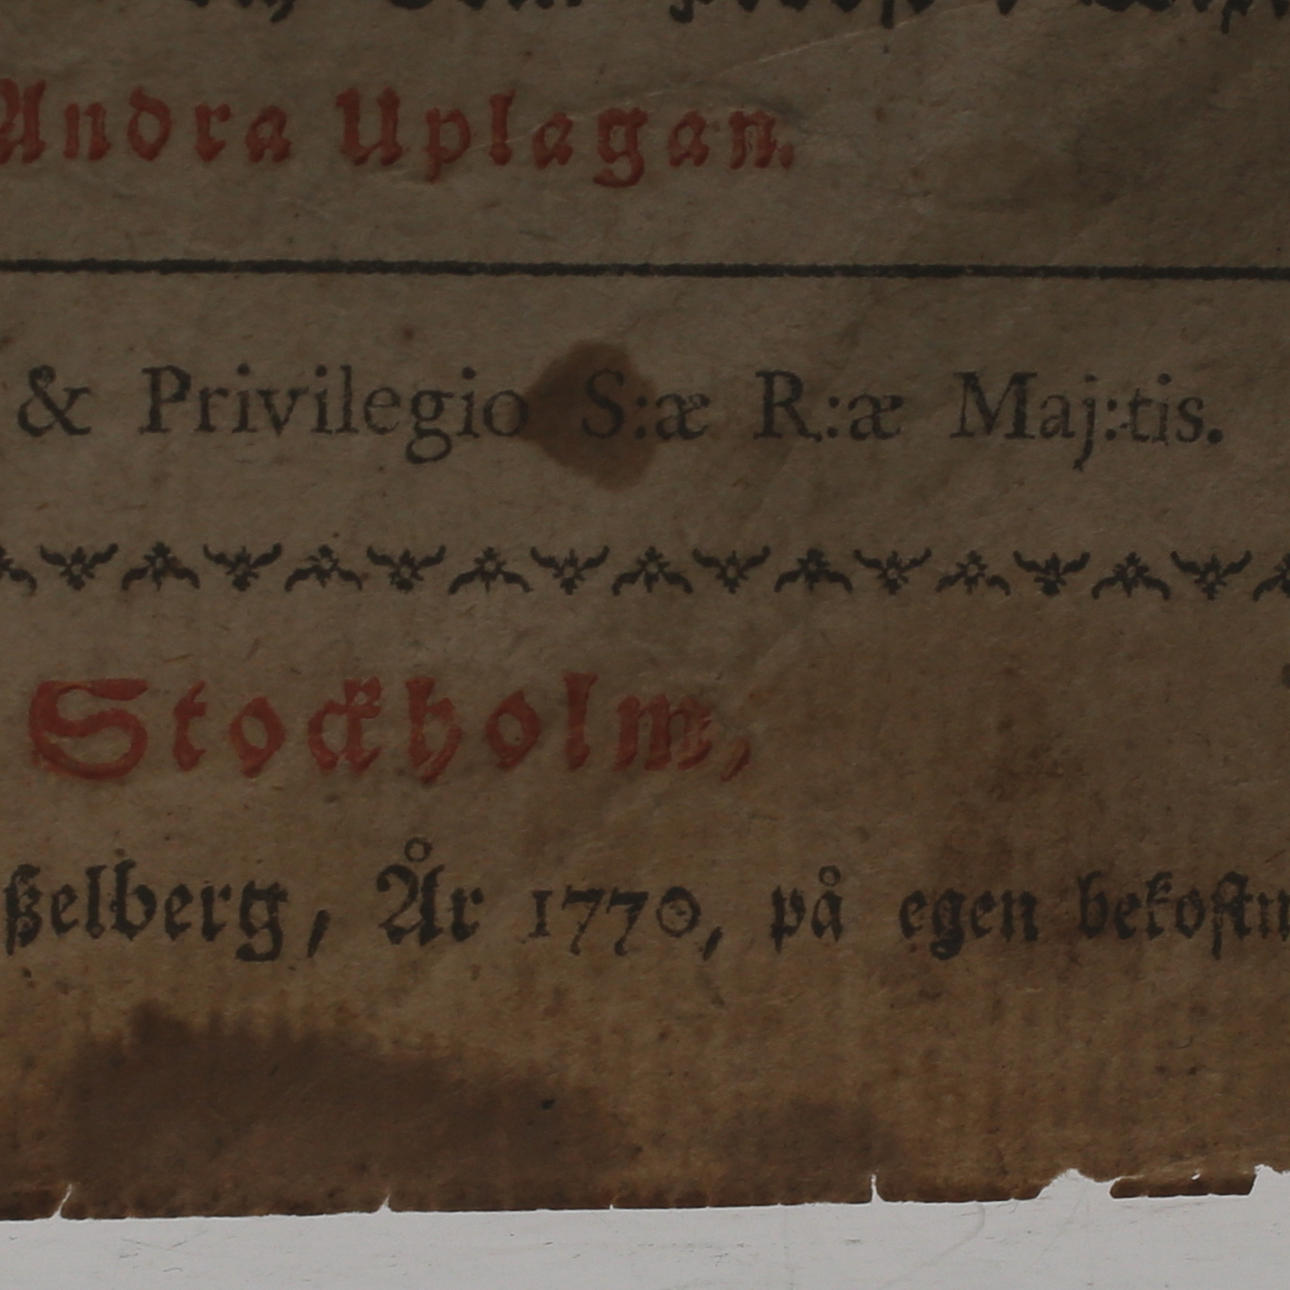 Andra Uplagan.
& Privilegio S:æ R:æ Maj:tis.
Stockholm,
ßelberg, År 1770, på egen bekostn